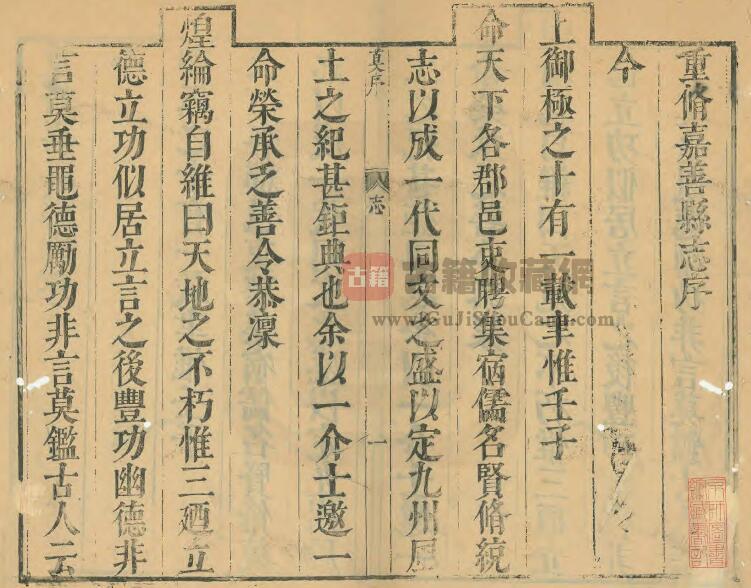 重脩嘉善縣志序
今
上御極之十有一載聿惟壬子
命天下各郡邑吏聘集宿儒名賢脩統
志以成一代同文之盛以定九州風
莫序
志
一
土之紀甚鉅典也余以一介士邀一
命榮承乏善令恭凜
煌綸竊自維曰天地之不朽惟三廼立
德立功似居立言之後豐功幽德非
言莫垂黽德勵功非言莫鑑古人云
古籍
古籍收藏網
www.GuJiShouCang.com